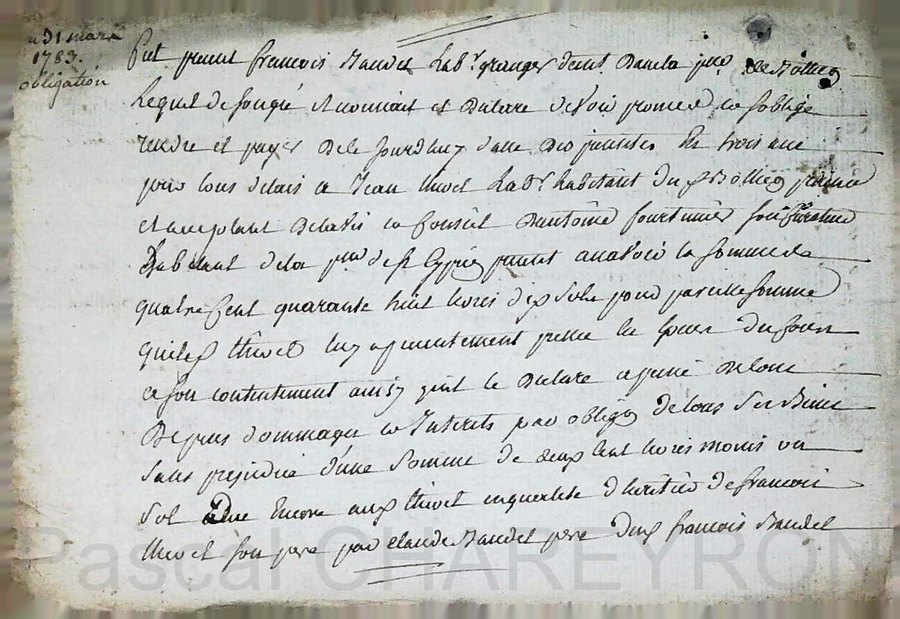 31 mars
1783.
obligation
fut present francois Naudet lab.r granger
Lequel de son gré et connait et declare devoir promet et soblige
rendre et payer de ce jourdhuy dans des presentes En trois ans
pour tous delais a Jean thivet lab.r habitant du
et acceptant de lavis et Conseil Dantoine fourtunier son Curateur
habitant dela p.sse de st Cyprien present avecluy la somme de
quatre Cent quarante huit livres dix sols pour pareille somme
quiled thivet luy a presentement presté
a son contentement ainsy quil le declare a peine de tous
Depens dommages et Interets par oblig.on de tous ses Biens
sans prejudice dune somme de deux Cent livres moins un
sol düe Encore aud thivet en qualité dheritier de francois
thivet son pere par Claude Naudet pere dud francois Naudet
Pascal CHAREYRON